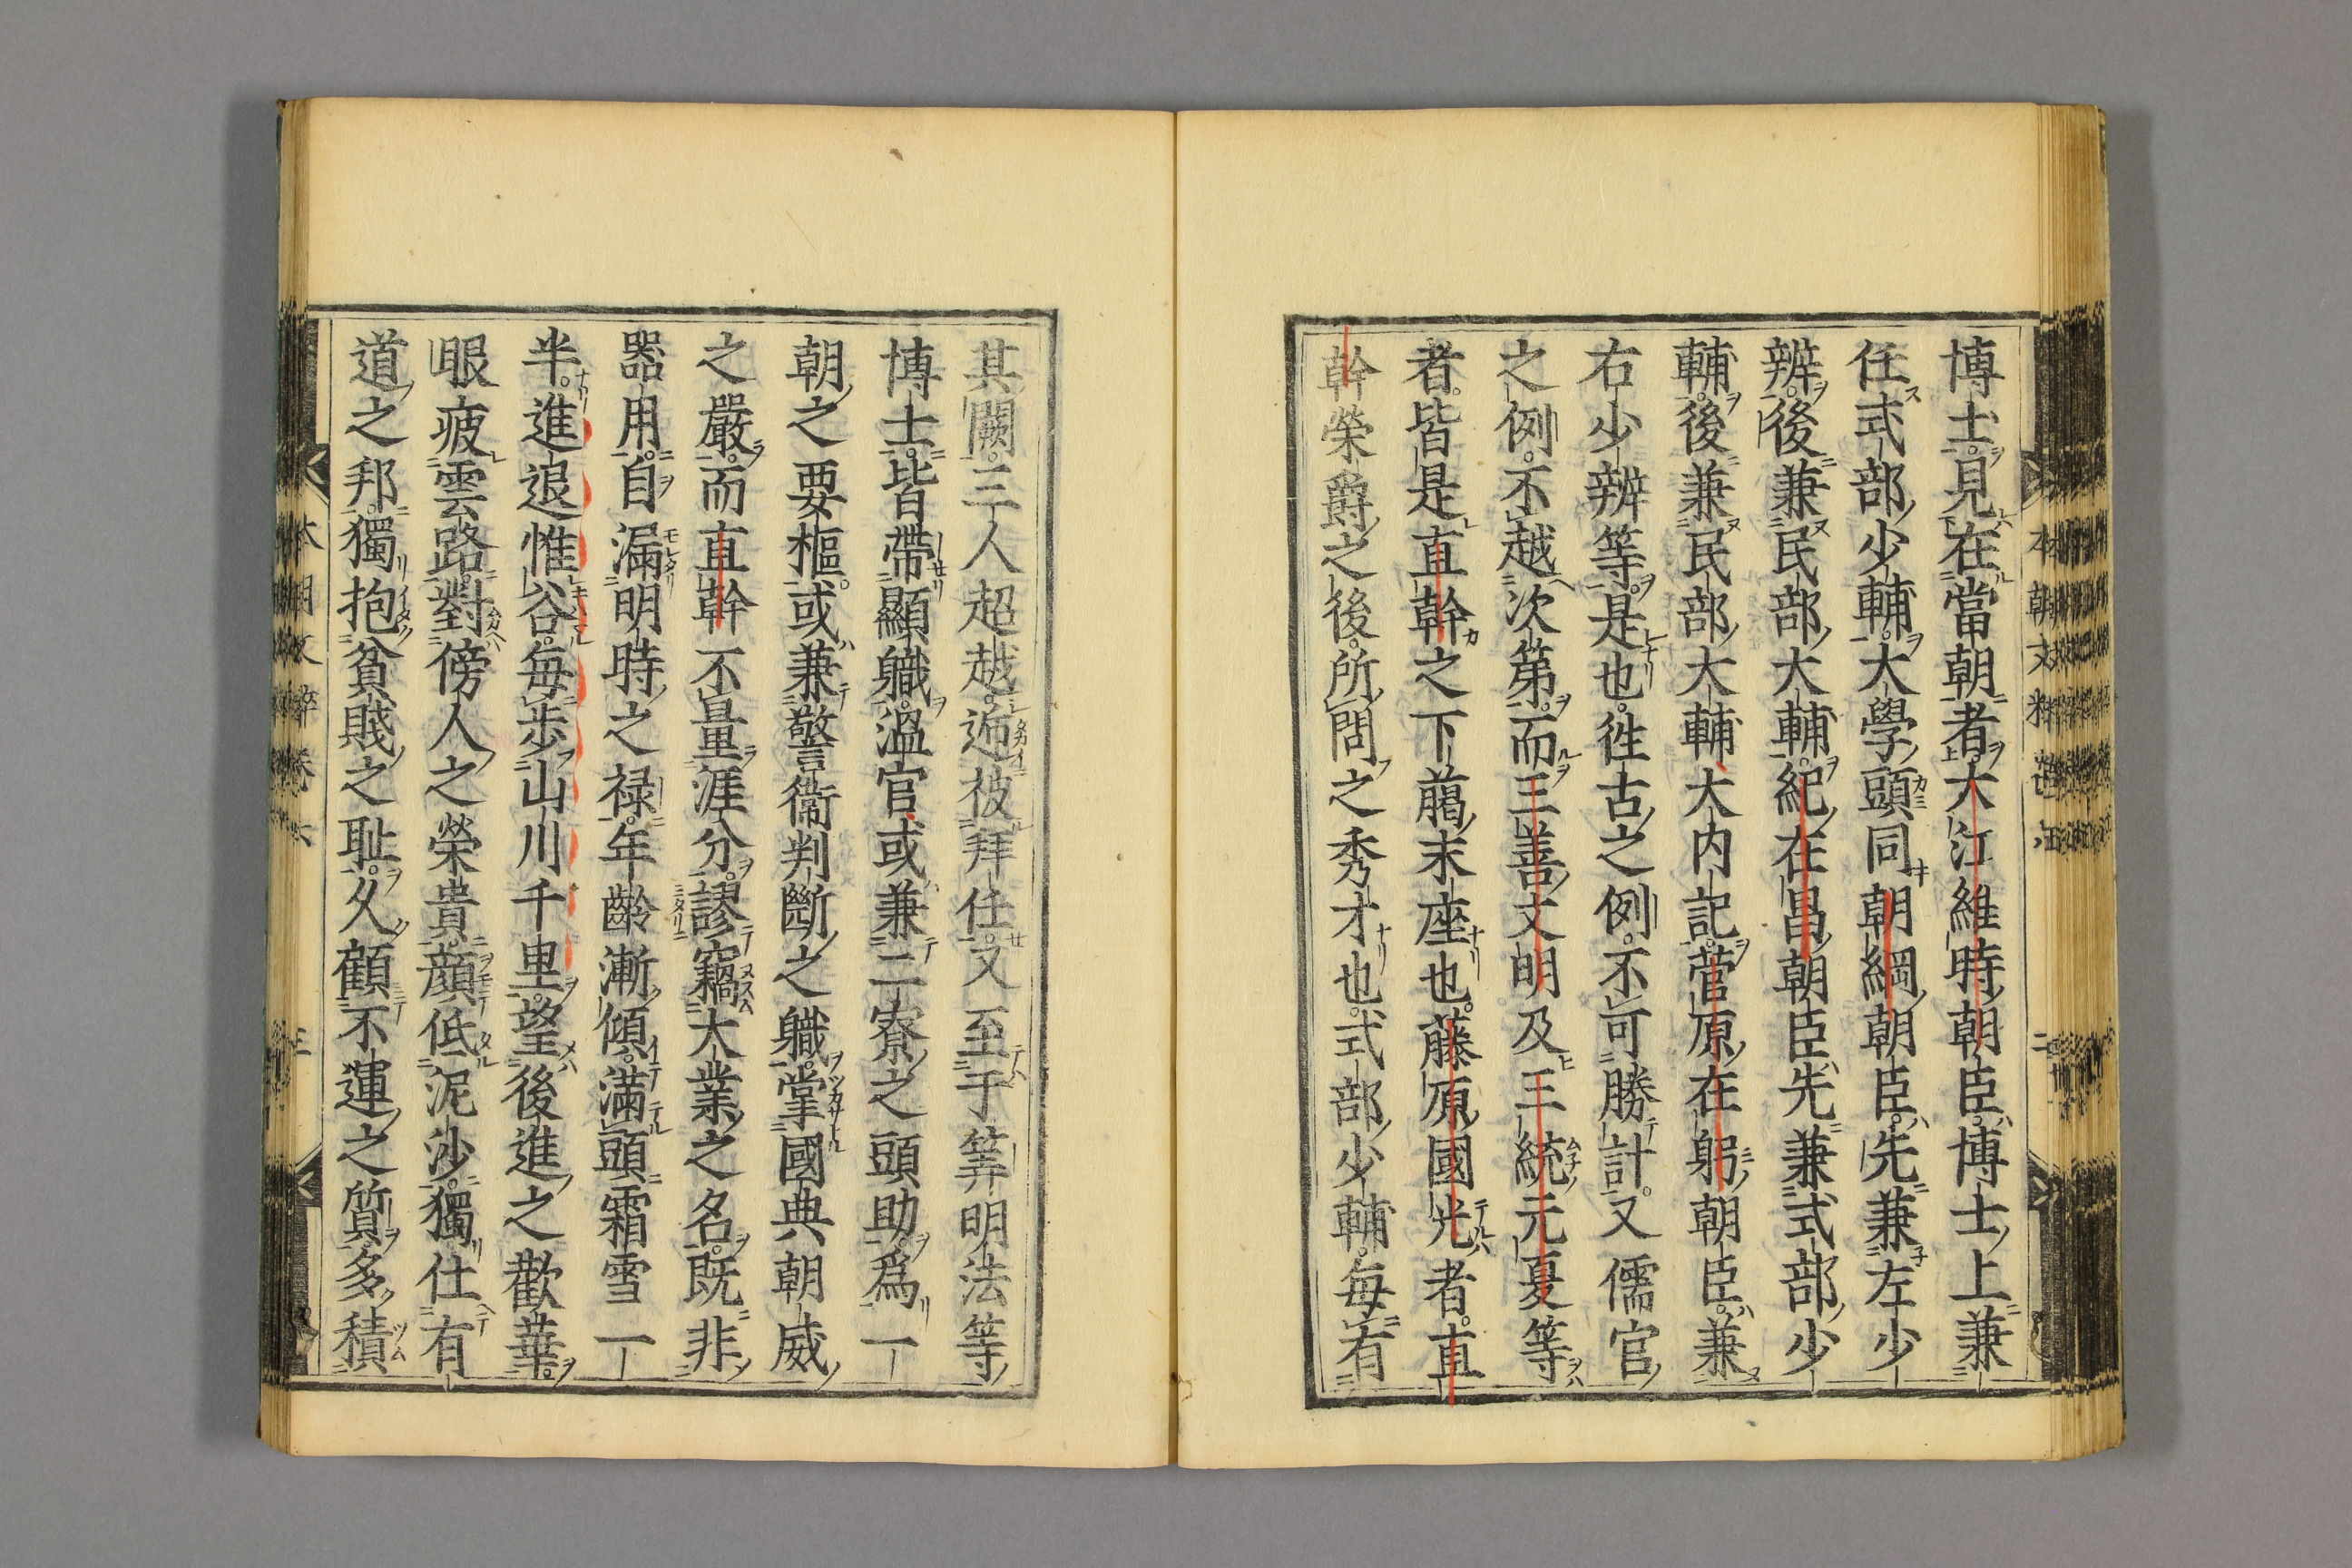 博士見在當朝者大江維時朝臣博士上兼
任式部少輔大學頭同朝綱朝臣先兼左少
辨後兼民部大輔紀在昌朝臣先兼式部少
輔後兼民部大輔大内記菅原在躬朝臣兼
右少辨等是也徃古之例不可勝計又儒官
之例不越次第而三善文明及三統元夏等
者皆是直幹之下﨟末座也藤原國光者直
幹榮爵之後所問之秀才也式部少輔毎有
其闕三人超越遞彼拜任又至于筭明法等
博士皆帶顯職溫官或兼二寮之頭助爲一
朝之要樞或兼警衞判斷之職掌國典朝威
之嚴而直幹不量涯分謬竊大業之名既非
器用自漏明時之禄年齡漸傾滿頭霜雪一
半進退惟谷毎步山川千里望後進之歡華
眼疲雲路對傍人之榮貴顔低泥沙獨仕有
道之邦獨抱貧賤之耻久顧不運之質多積